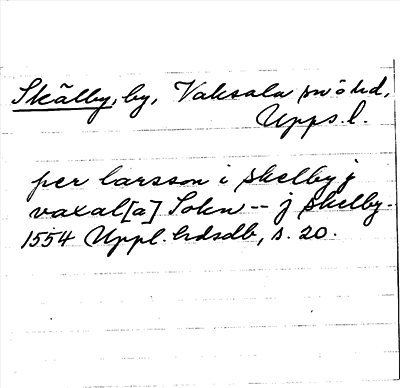 Skälby, by, Vaksala sn o hd,
Upps. l.
per larsson i skelby j
vaxal[a] Sokn -- j skelby.
1554 Uppl. lrdsdb, s. 20.